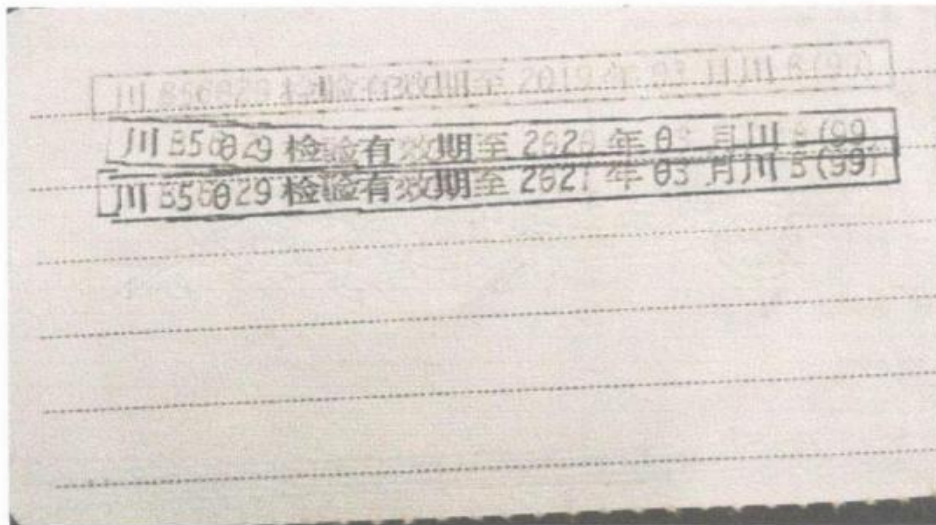 川B56029检验有效期至2019年03月川B(99)
川B56029检验有效期至2020年03月川B(99
川B56029检验有效期至2021年03月川B(99)